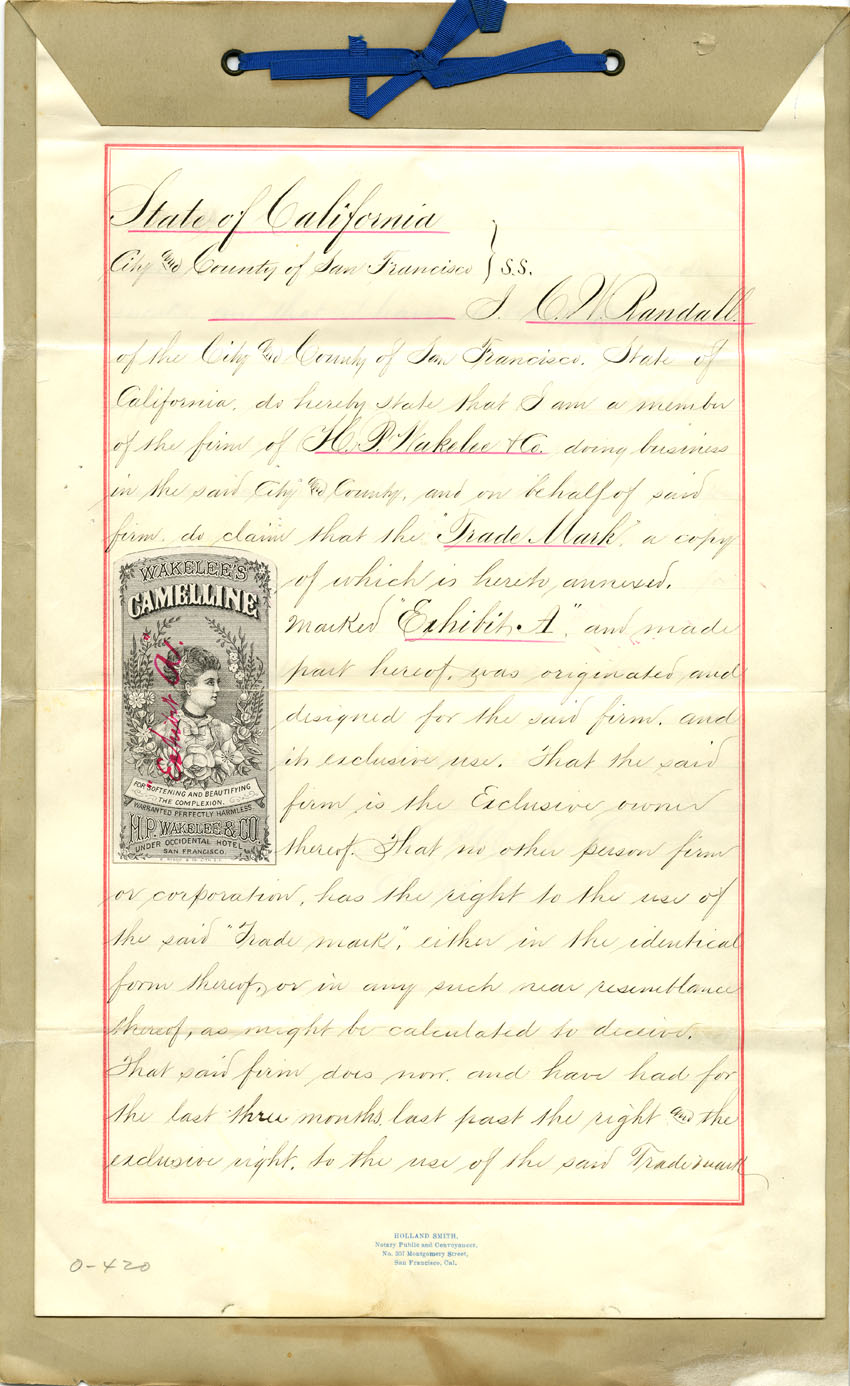 State of California
City and County of San Francisco } S.S.
I. C. W. Randall.
of the City and County of San Francisco. State of
California. do hereby state that I am a member
of the firm of H. P. Wakelee & Co. doing business
in the said City and County, and on behalf of said
firm. do claim that the "Trade Mark", a copy
of which is hereto, annexed.
Marked "Exhibit. A", and made
part hereof, was originated and
designed for the said firm. and
its exclusive use. That the said
firm is the Exclusive owner
thereof. That no other person firm
or corporation, has the right to the use of
the said "Trade mark", either in the identical
form thereof, or in any such near resemblance
thereof, as might be calculated to deceive.
That said firm does now. and have had for
the last three months. last past the right and the
exclusive right. to the use of the said Trademark
WAKELEE'S
CAMELLINE
"Exhibit A."
FOR SOFTENING AND BEAUTIFYING
THE COMPLEXION.
WARRANTED PERFECTLY HARMLESS
H.P. WAKELEE & CO.
UNDER OCCIDENTAL HOTEL
SAN FRANCISCO.
HOLLAND SMITH,
Notary Public and Conveyancer,
No. 307 Montgomery Street,
San Francisco, Cal.
O-420